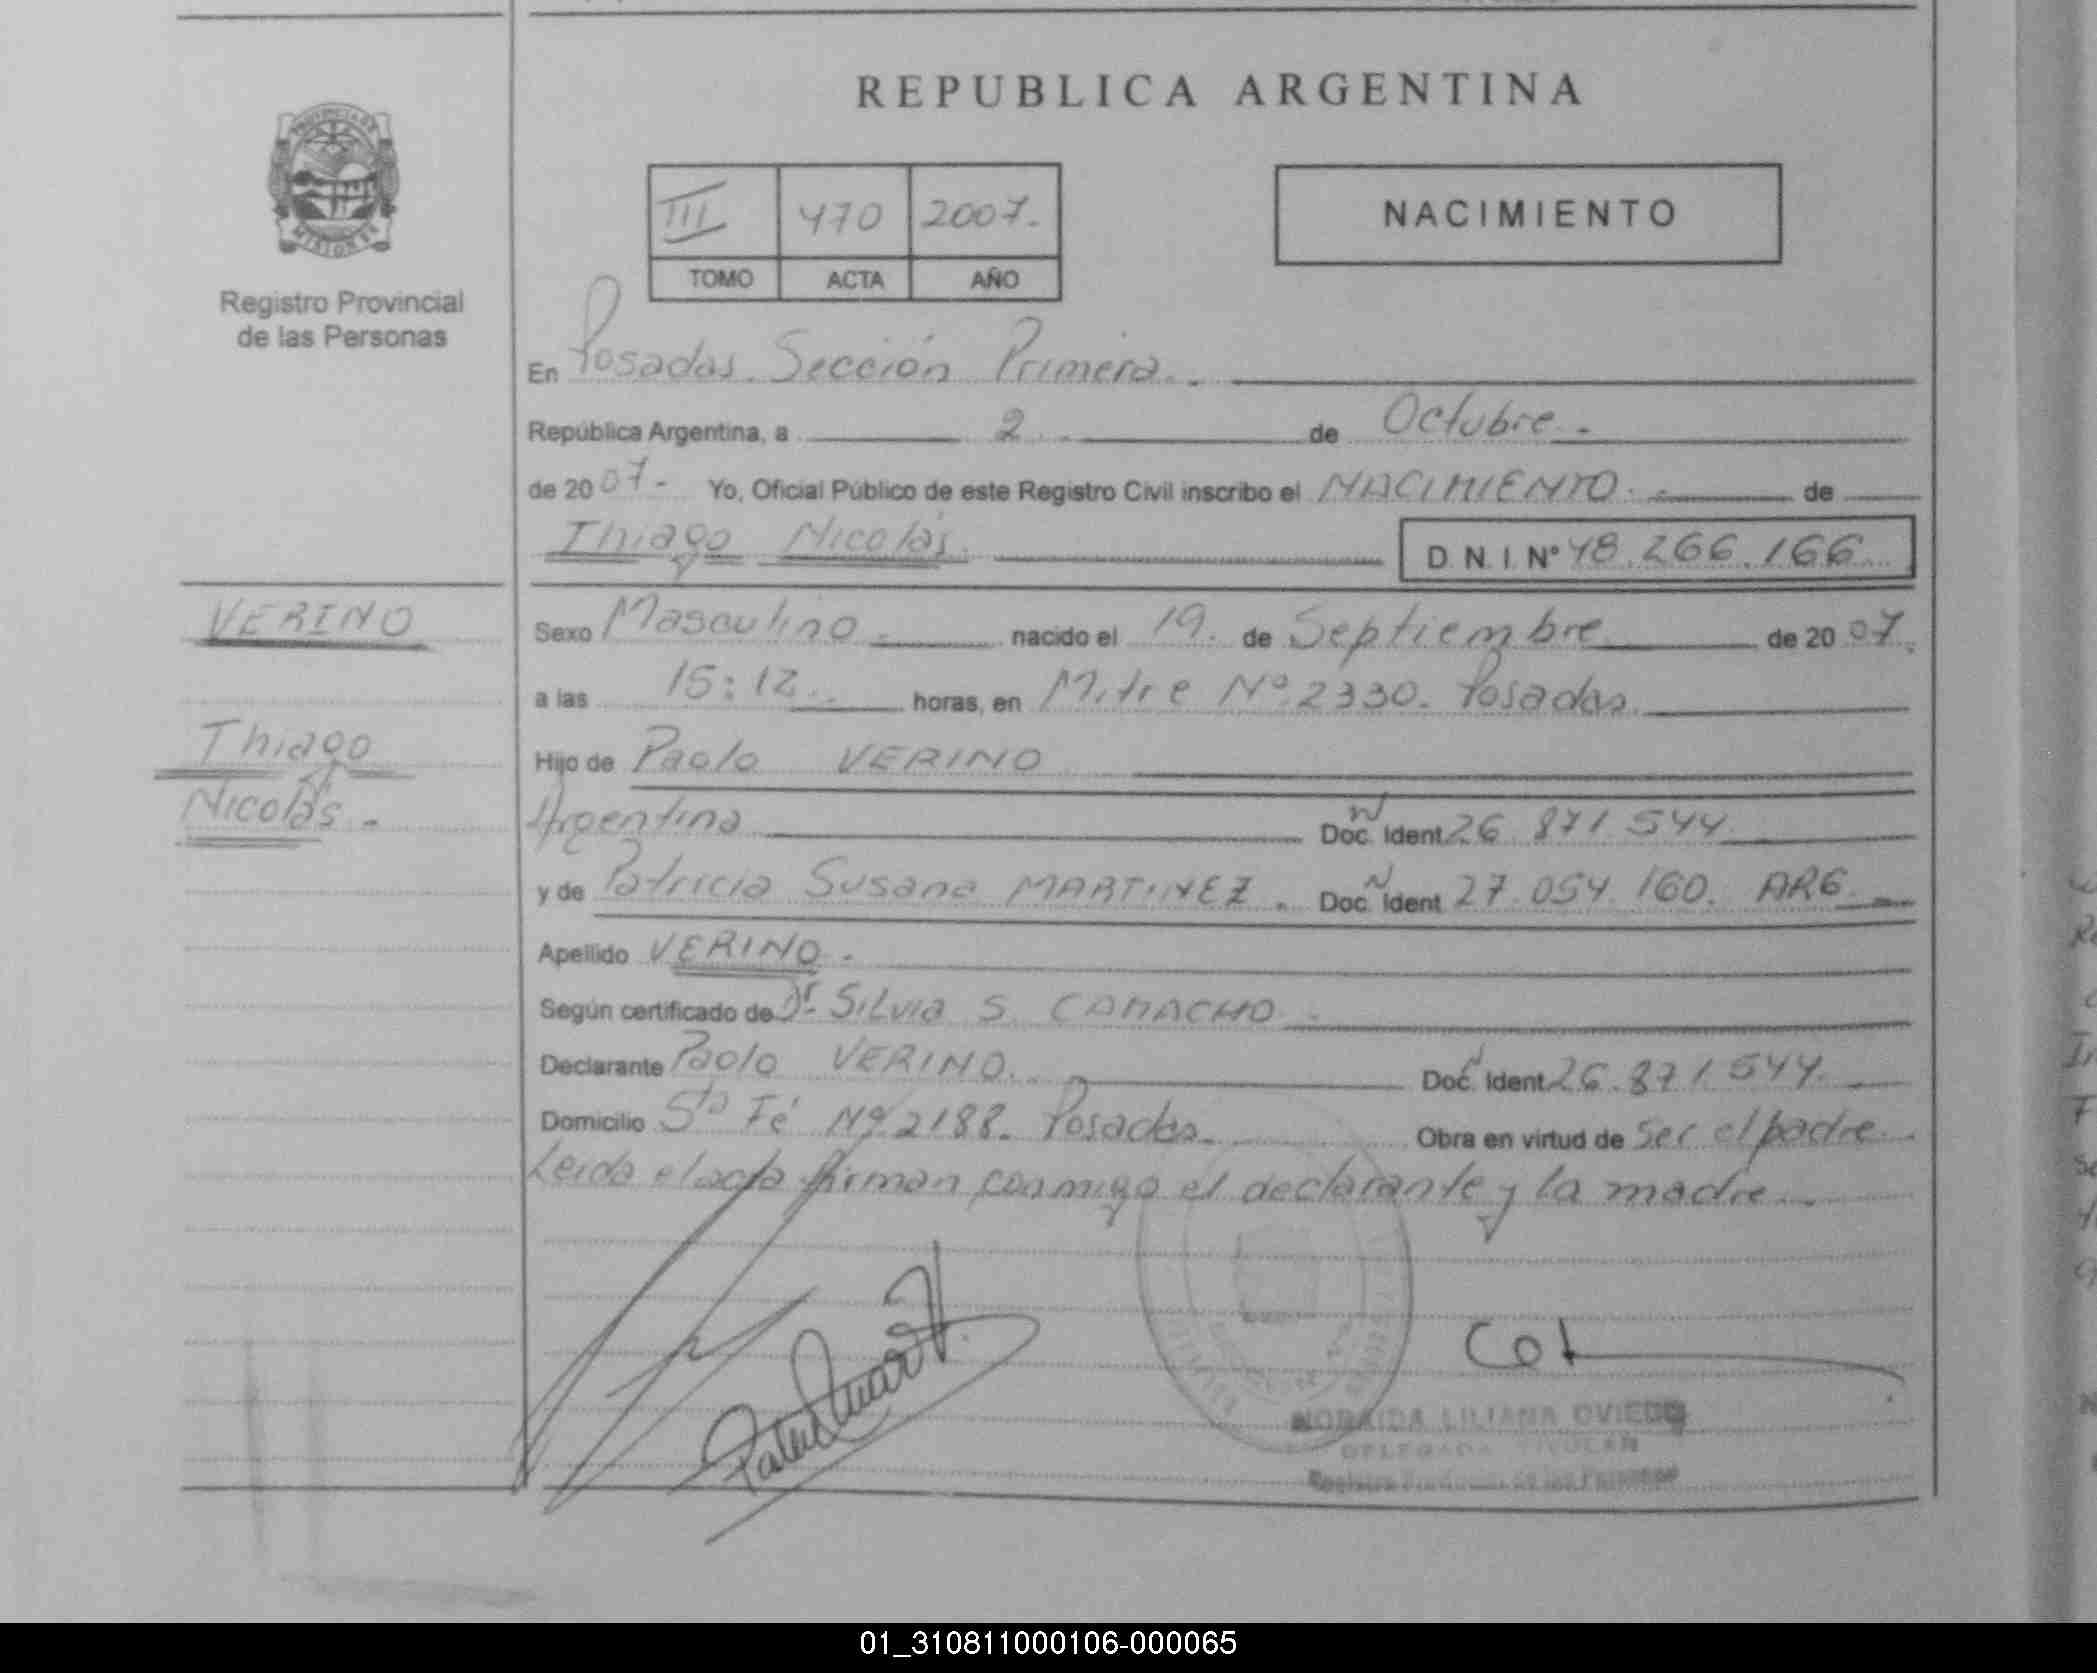 REPUBLICA ARGENTINA
PROVINCIA DE
MISIONES
Registro Provincial
de las Personas
III 470 2007.
TOMO ACTA AÑO
NACIMIENTO
En Posadas. Sección Primera.
República Argentina, a 2 de Octubre.
de 2007- Yo, Oficial Público de este Registro Civil inscribo el NACIMIENTO. de
Thiago Nicolás. D. N. I. Nº 48.266.166
VERINO
Thiago
Nicolás.-
Sexo Masculino nacido el 19. de Septiembre de 2007.
a las 15:12. horas, en Mitre Nº 2330. Posadas.
Hijo de Paolo VERINO
Argentina Doc. Ident 26.871.544
y de Patricia Susana MARTINEZ. Doc. Ident 27.054.160. ARG
Apellido VERINO.
Según certificado de Dr. Silvia S. CAMACHO
Declarante Paolo VERINO. Doc. Ident 26.871.544.
Domicilio Sta Fé Nº 2188. Posadas. Obra en virtud de Ser el padre.
Leída el acta firman conmigo el declarante y la madre.
NORAIDA LILIANA OVIEDO
DELEGADA TITULAR
Registro Provincial de las Personas
01_310811000106-000065